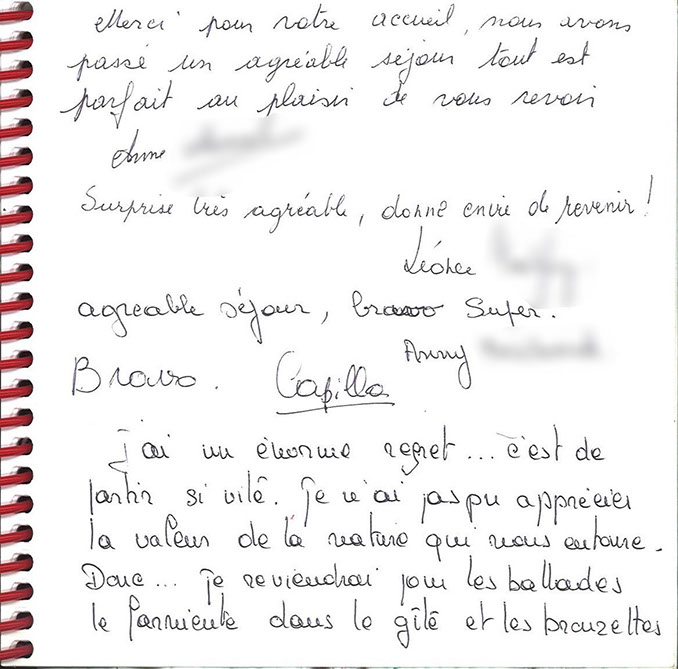 Merci pour votre accueil, nous avons
passé un agréable séjour tout est
parfait au plaisir de vous revoir
Anne
Surprise très agréable, donne envie de revenir !
Léonce
agreable séjour, bravo Super.
Anny
Bravo. Capilla
J'ai un énorme regret... c'est de
partir si vite. Je n'ai pas pu apprécier
la valeur de la nature qui nous entoure.
Donc... je reviendrai pour les ballades
le farniente dans le gîte et les brouzettes